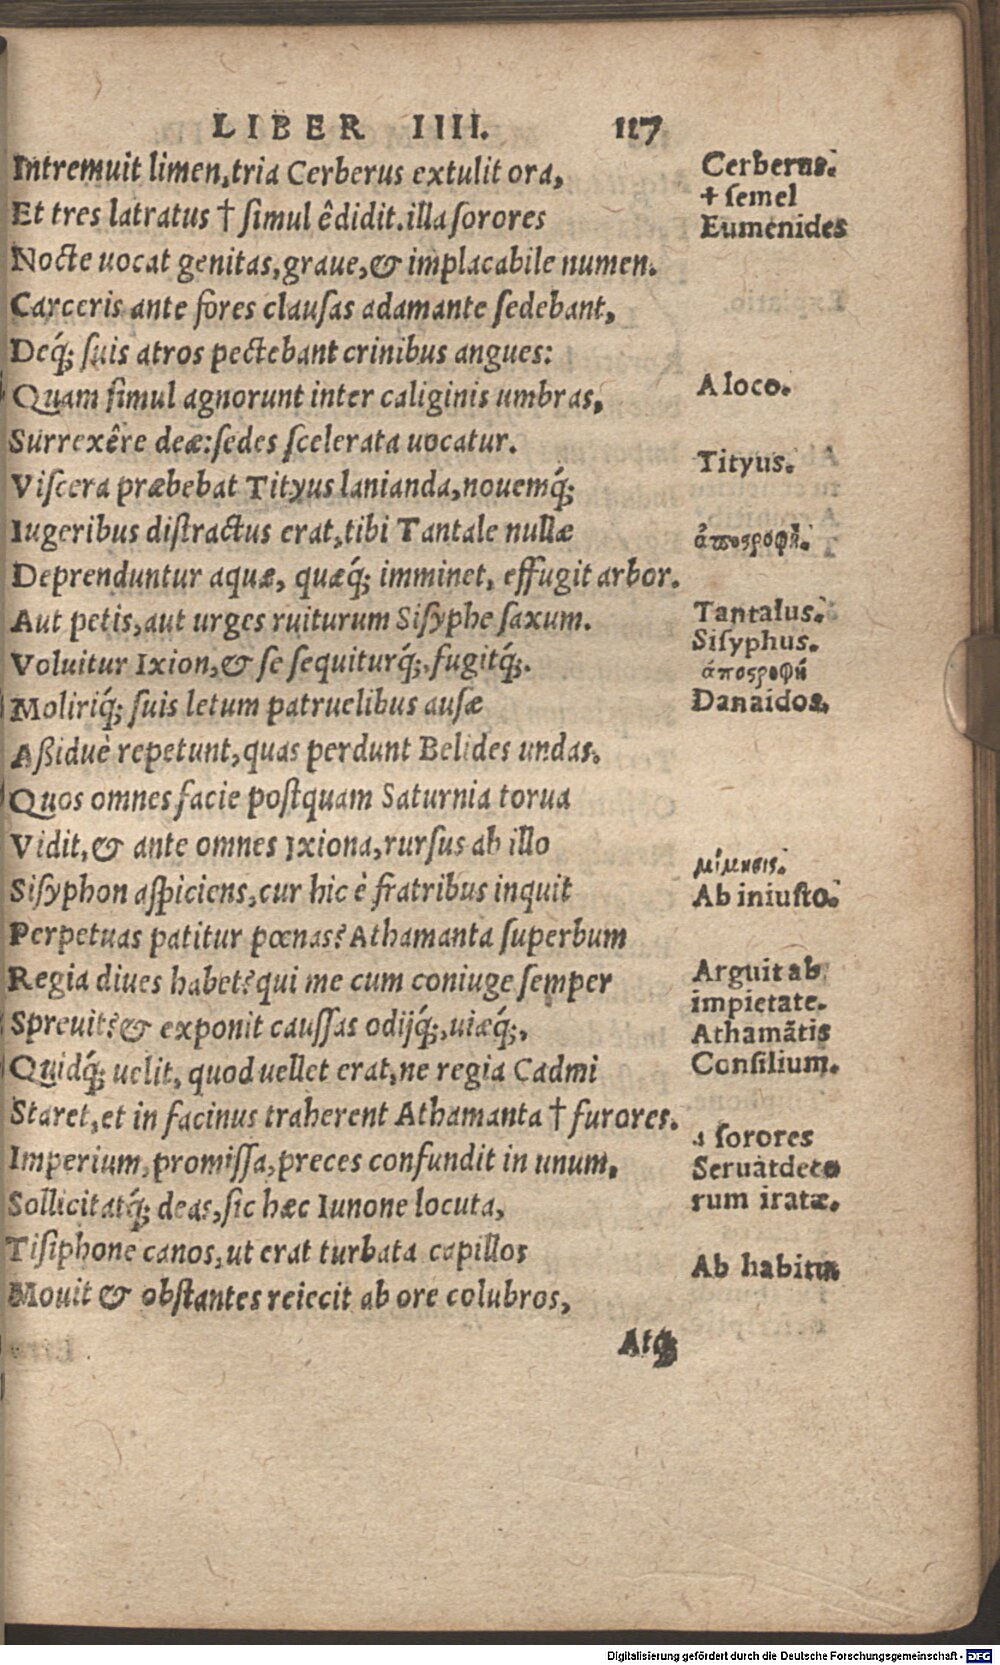 LIBER IIII. 117
Intremuit limen, tria Cerberus extulit ora,
Et tres latratus † simul êdidit. illa sorores
Nocte uocat genitas, graue, & implacabile numen.
Carceris ante fores clausas adamante sedebant,
Deq́; suis atros pectebant crinibus angues:
Quam simul agnorunt inter caliginis umbras,
Surrexêre deæ: sedes scelerata uocatur.
Viscera præbebat Tityus lanianda, nouemq́;
Iugeribus distractus erat, tibi Tantale nullæ
Deprenduntur aquæ, quæq́; imminet, effugit arbor.
Aut petis, aut urges ruiturum Sisyphe saxum.
Voluitur Ixion, & se sequiturq́;, fugitq́;.
Moliriq́; suis letum patruelibus ausæ
Aßiduè repetunt, quas perdunt Belides undas.
Quos omnes facie postquam Saturnia torua
Vidit, & ante omnes Ixiona, rursus ab illo
Sisyphon aspiciens, cur hic è fratribus inquit
Perpetuas patitur pœnas? Athamanta superbum
Regia diues habet? qui me cum coniuge semper
Spreuit? & exponit caussas odijq́;, uiæq́;,
Quidq́; uelit, quod uellet erat, ne regia Cadmi
Staret, et in facinus traherent Athamanta † furores.
Imperium, promissa, preces confundit in unum,
Sollicitatq́; deas, sic hæc Iunone locuta,
Tisiphone canos, ut erat turbata capillos
Mouit & obstantes reiecit ab ore colubros,
Atq;
Cerberus.
+ semel
Eumenides
A loco.
Tityus.
ἀποστροφή.
Tantalus.
Sisyphus.
ἀποστροφή
Danaidos.
μίμησις.
Ab iniusto.
Arguit ab
impietate.
Athamãtis
Consilium.
sorores
Seruat deco
rum iratæ.
Ab habitu
Digitalisierung gefördert durch die Deutsche Forschungsgemeinschaft - DFG